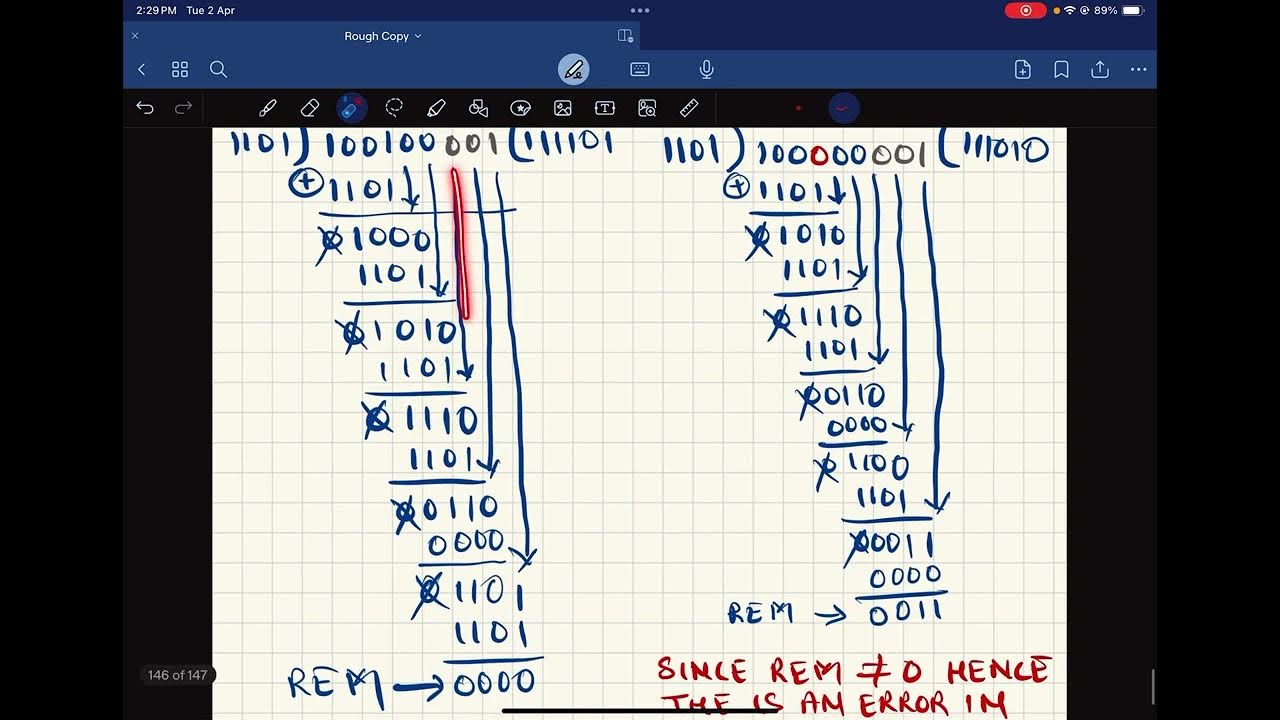 2:29 PM Tue 2 Apr
89%
Rough Copy
1101 ) 100100 001 ( 111101
⊕ 1101
01000
1101
01010
1101
01110
1101
00110
0000
01101
1101
REM → 0000
1101 ) 100000001 ( 111010
⊕ 1101
01010
1101
01110
1101
00110
0000
01100
1101
00011
0000
REM → 0011
SINCE REM ≠ 0 HENCE
THE IS AN ERROR IN
146 of 147